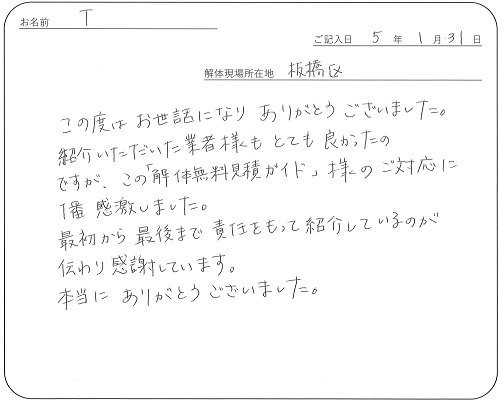 お名前 T
ご記入日 5年1月31日
解体現場所在地 板橋区
この度は お世話になり ありがとうございました。
紹介いただいた業者様も とても 良かったの
ですが、この「解体無料見積ガイド」様のご対応に
1番 感激しました。
最初から 最後まで 責任をもって紹介しているのが
伝わり感謝しています。
本当に ありがとうございました。